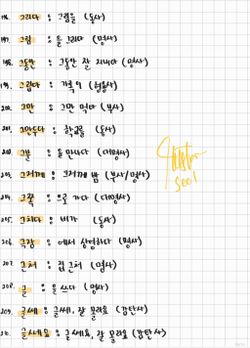 196. 그리다 : 그림을 (동사)
197. 그림 : 을 그리다 (명사)
198. 그동안 : 그동안 잘 지내다 (명사)
199. 그립다 : 가족이 (형용사)
200. 그만 : 그만 먹다 (부사)
201. 그만두다 : 학교를 (동사)
202. 그분 : 을 만나다 (대명사)
203. 그저께 : 그저께 밤 (부사/명사)
204. 그쪽 : 으로 가다 (대명사)
205. 그치다 : 비가 (동사)
206. 극장 : 에서 상영하다 (명사)
207. 근처 : 집 근처 (명사)
208. 글 : 을 쓰다 (명사)
209. 글쎄 : 글쎄, 잘 모르겠 (감탄사)
210. 글쎄요 : 글쎄요, 잘 모르겠 (감탄사)
seol